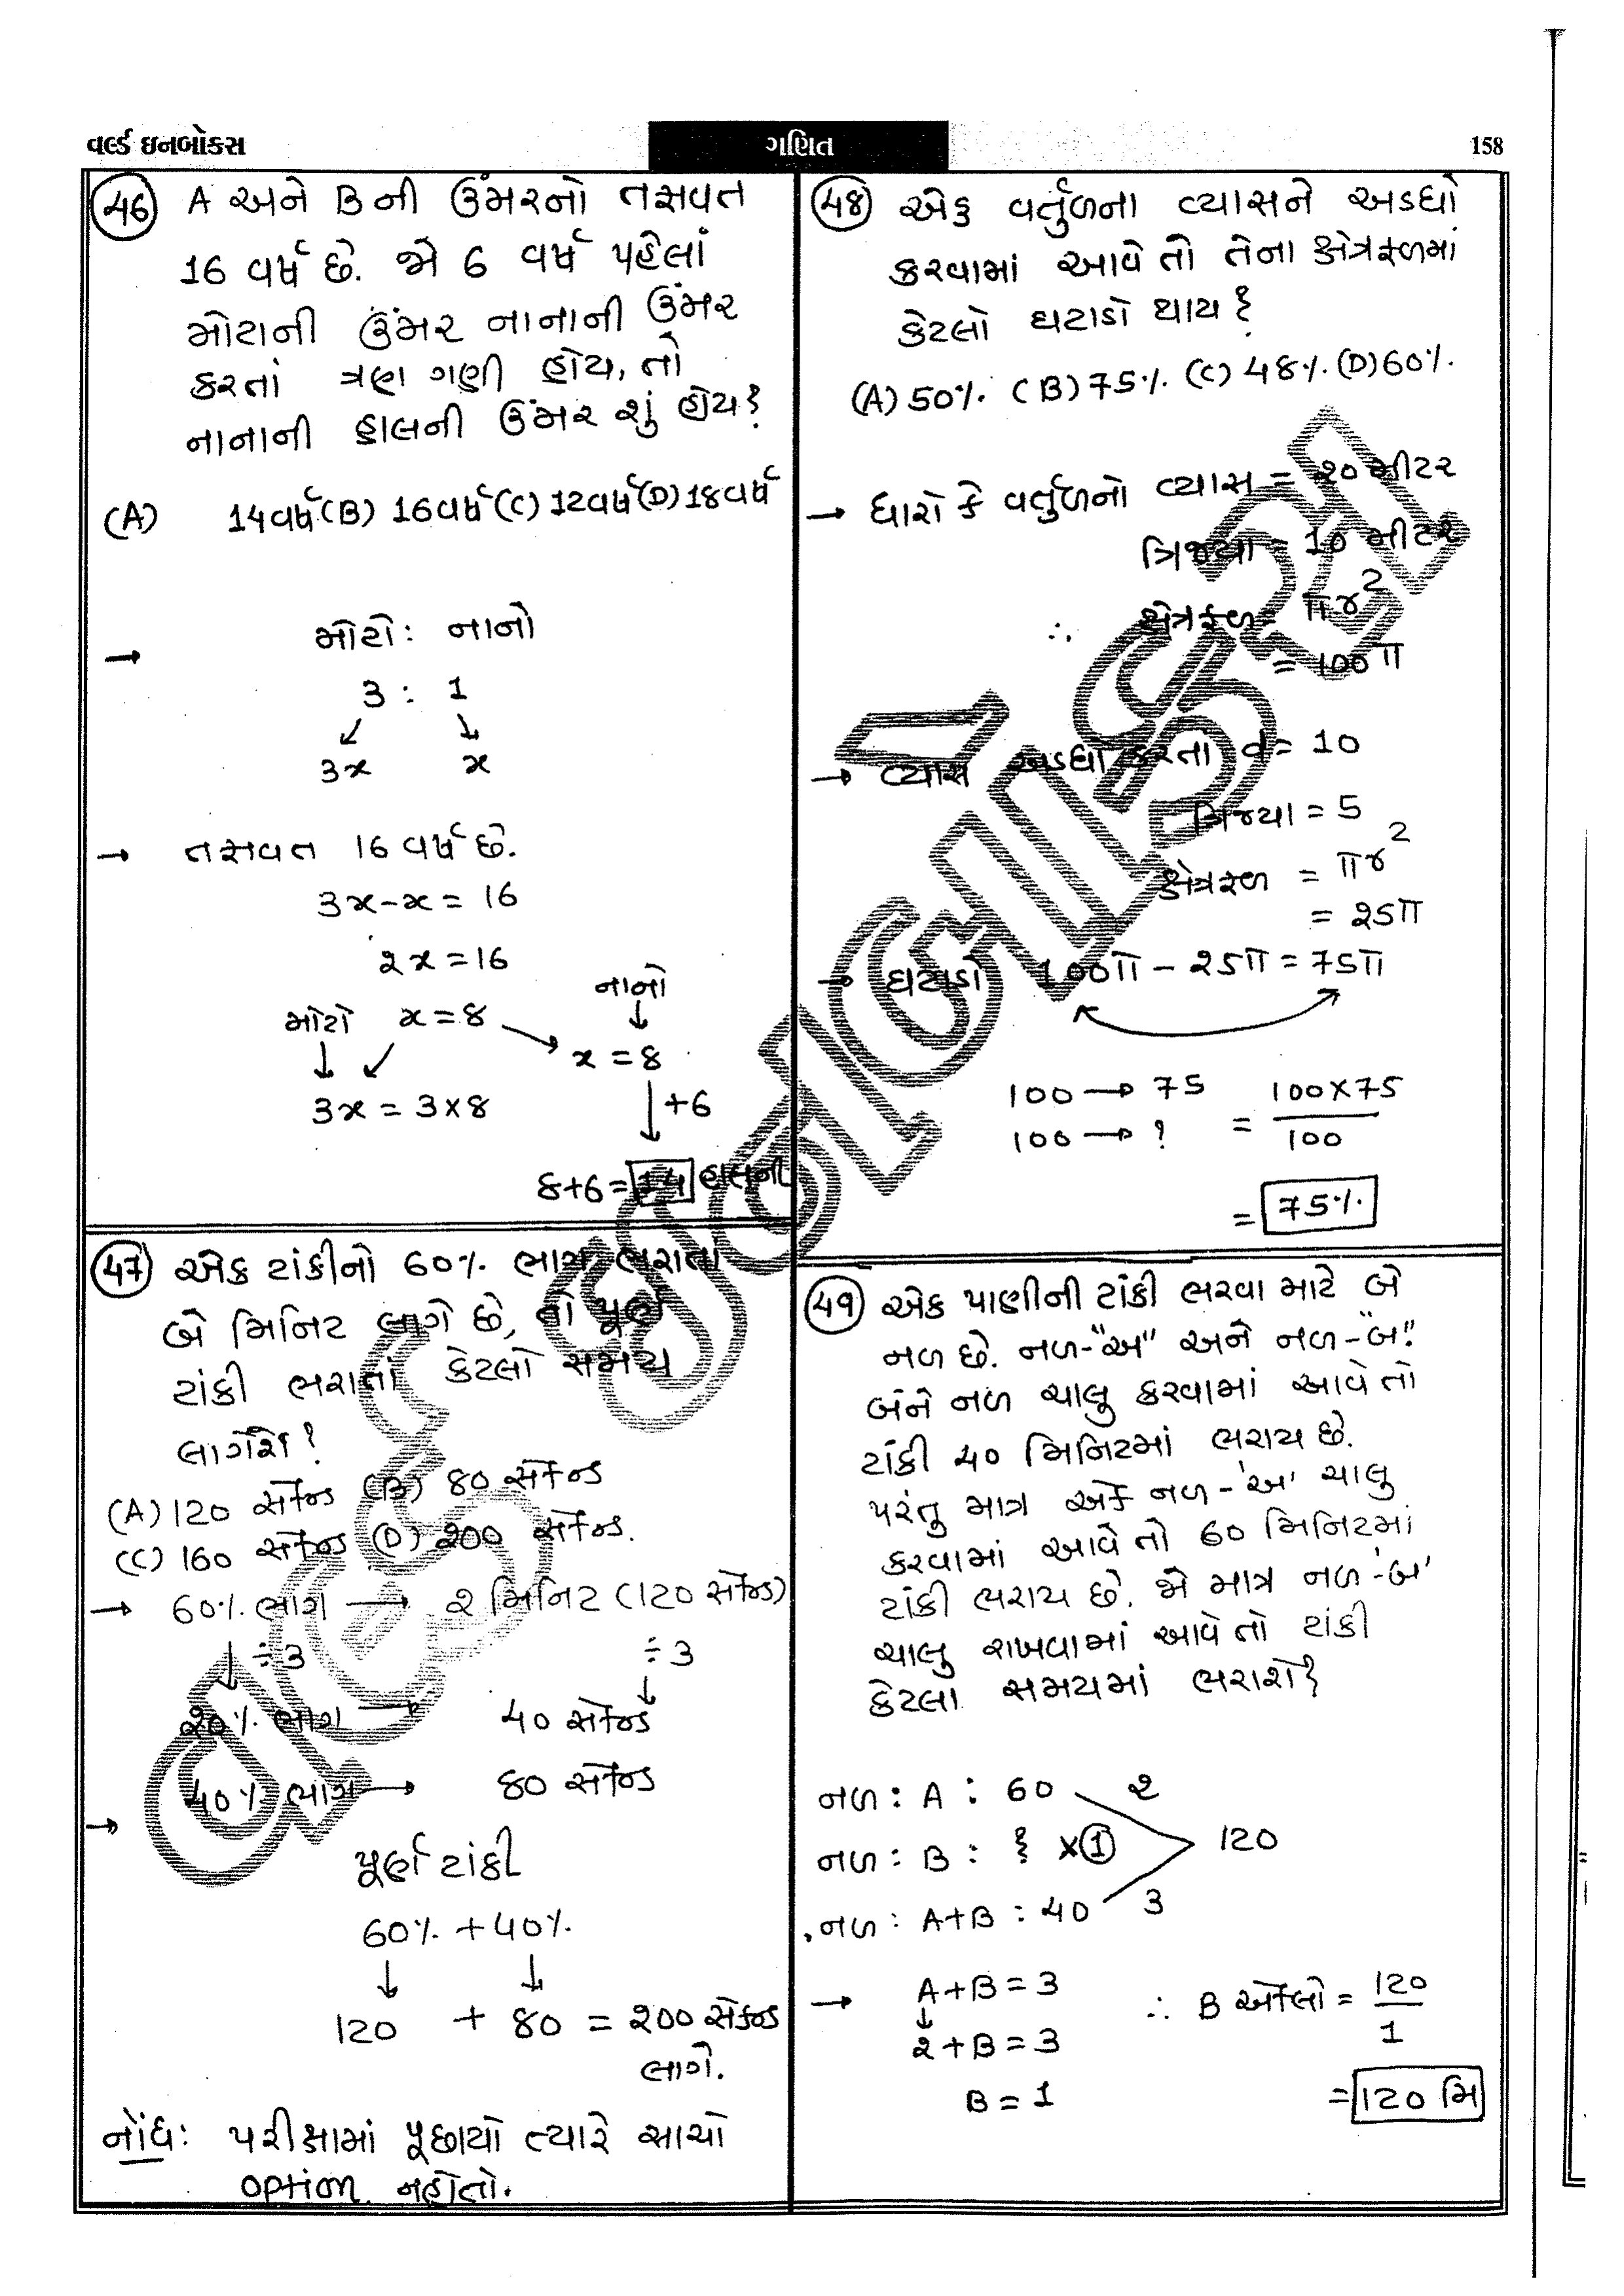 વર્લ્ડ ઇનબોક્સ
ગણિત
158
46 A અને B ની ઉંમરનો તફાવત
16 વર્ષ છે. જો 6 વર્ષ પહેલાં
મોટાની ઉંમર નાનાની ઉંમર
કરતાં ત્રણ ગણી હોય, તો
નાનાની હાલની ઉંમર શું હોય?
(A) 14 વર્ષ (B) 16 વર્ષ (C) 12 વર્ષ (D) 18 વર્ષ
→ મોટો : નાનો
3 : 1
↙ ↘
3x x
→ તફાવત 16 વર્ષ છે.
3x - x = 16
2x = 16
મોટો x = 8 → નાનો
↓ ↙ ↓
x = 8
3x = 3 x 8 ↓ +6
8 + 6 = 14 હાલની
47 એક ટાંકીનો 60% ભાગ ભરાતાં
બે મિનિટ લાગે છે, તો પૂર્ણ
ટાંકી ભરાતાં કેટલો સમય
લાગશે?
(A) 120 સેકન્ડ (B) 80 સેકન્ડ
(C) 160 સેકન્ડ (D) 200 સેકન્ડ.
→ 60% ભાગ → 2 મિનિટ (120 સેકન્ડ)
↓ ÷3 ÷3 ↓
20% ભાગ → 40 સેકન્ડ
→ 40% ભાગ → 80 સેકન્ડ
પૂર્ણ ટાંકી
60% + 40%
↓ ↓
120 + 80 = 200 સેકન્ડ
લાગે.
નોંધ: પરીક્ષામાં પૂછાયો ત્યારે સાચો
option નહોતો.
48 એક વર્તુળના વ્યાસને અડધો
કરવામાં આવે તો તેના ક્ષેત્રફળમાં
કેટલો ઘટાડો થાય?
(A) 50% (B) 75% (C) 48% (D) 60%
→ ધારો કે વર્તુળનો વ્યાસ = 20 મીટર
ત્રિજ્યા = 10 મીટર
∴ ક્ષેત્રફળ = πr²
= 100π
→ વ્યાસ અડધો કરતા d = 10
ત્રિજ્યા = 5
ક્ષેત્રફળ = πr²
= 25π
→ ઘટાડો 100π - 25π = 75π
100 → 75 = 100 x 75
100 → ? 100
= 75%
49 એક પાણીની ટાંકી ભરવા માટે બે
નળ છે. નળ-"અ" અને નળ-"બ".
બંને નળ ચાલુ કરવામાં આવે તો
ટાંકી 40 મિનિટમાં ભરાય છે.
પરંતુ માત્ર એક નળ-'અ' ચાલુ
કરવામાં આવે તો 60 મિનિટમાં
ટાંકી ભરાય છે. જો માત્ર નળ-'બ'
ચાલુ રાખવામાં આવે તો ટાંકી
કેટલા સમયમાં ભરાશે?
નળ : A : 60 2
નળ : B : ? x 1 120
નળ : A+B : 40 3
→ A + B = 3 ∴ B એકલો = 120
↓ 1
2 + B = 3
B = 1 = 120 મિ
વર્લ્ડ ઇનબોક્સ